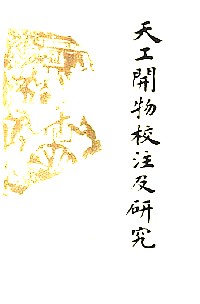 天工開物校注及研究